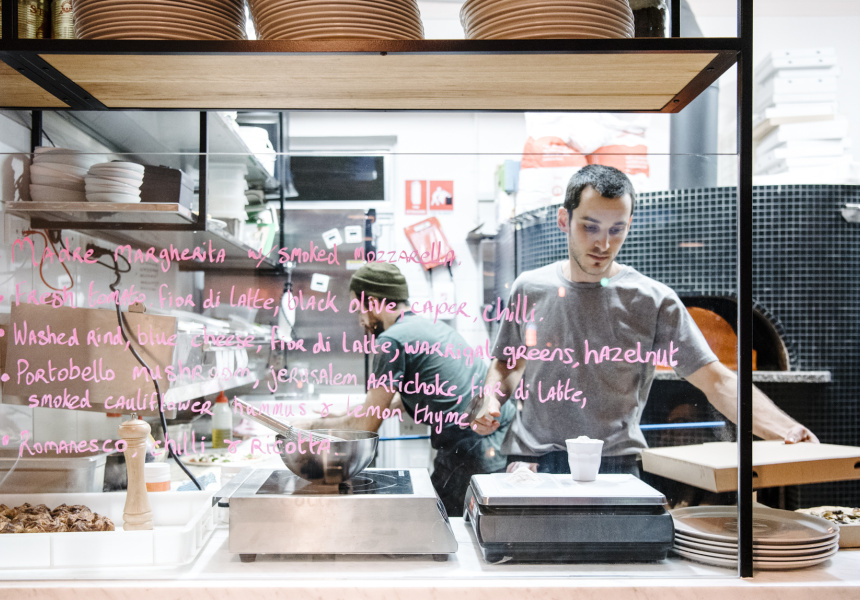 Madre Margherita w/ smoked mozzarella.
• Fresh tomato fior di latte, black olive, caper, chilli.
• Washed Rind, blue cheese, fior di latte, warrigal greens, hazelnut
• Portobello mushroom, jerusalem artichoke, fior di latte,
smoked cauliflower hummus & lemon thyme
• Romanesco, chilli & ricotta.